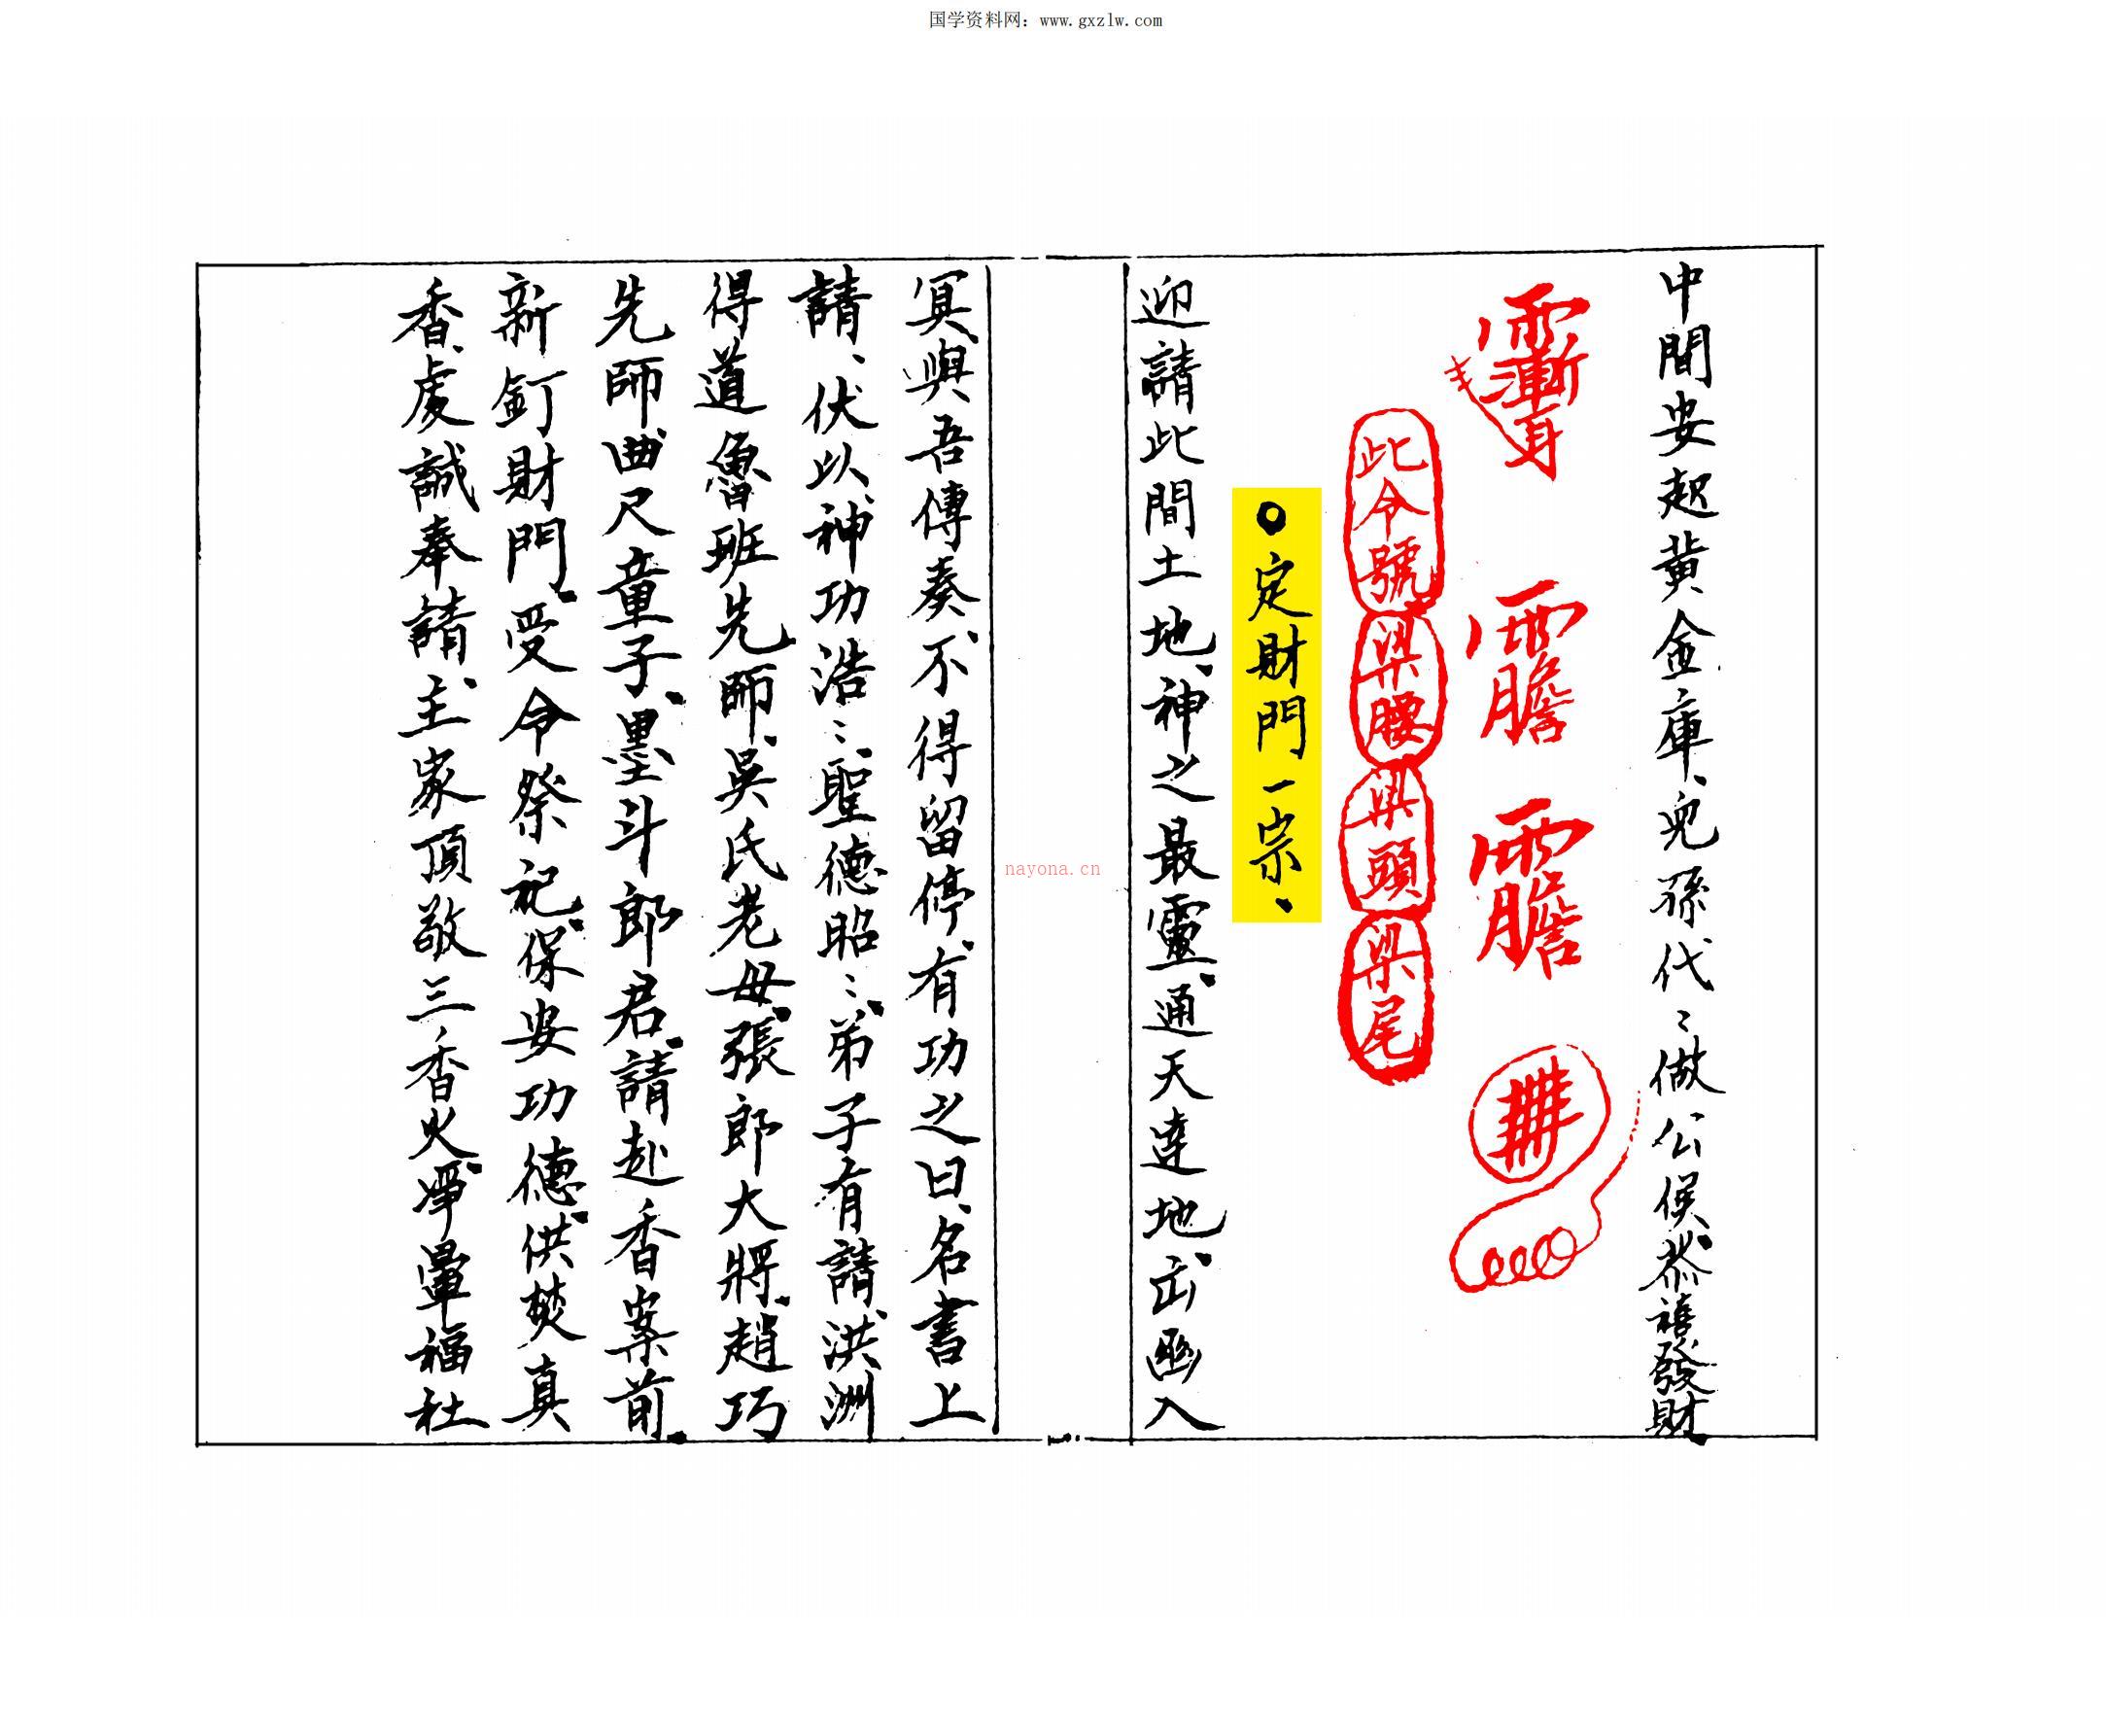 国学资料网：www.gxzlw.com
中間安起黃金庫、兒孫代〻做公侯、恭禧發財、
此令號
梁腰
梁頭
梁尾
○定財門一宗、
迎請此間土地、神之最靈、通天達地、出幽入
冥、與吾傳奏、不得留停、有功之日、名書上
請、伏以、神功浩〻、聖德昭〻、弟子有請、洪洲
得道魯班先師、吳氏老母、張郎大將、趙巧
先師、曲尺童子、墨斗郎君、請赴香案前、
新釘財門、受令祭祀、保安功德、供焚真
香、虔誠奉請、主家頂敬三香火、
福社
nayona.cn